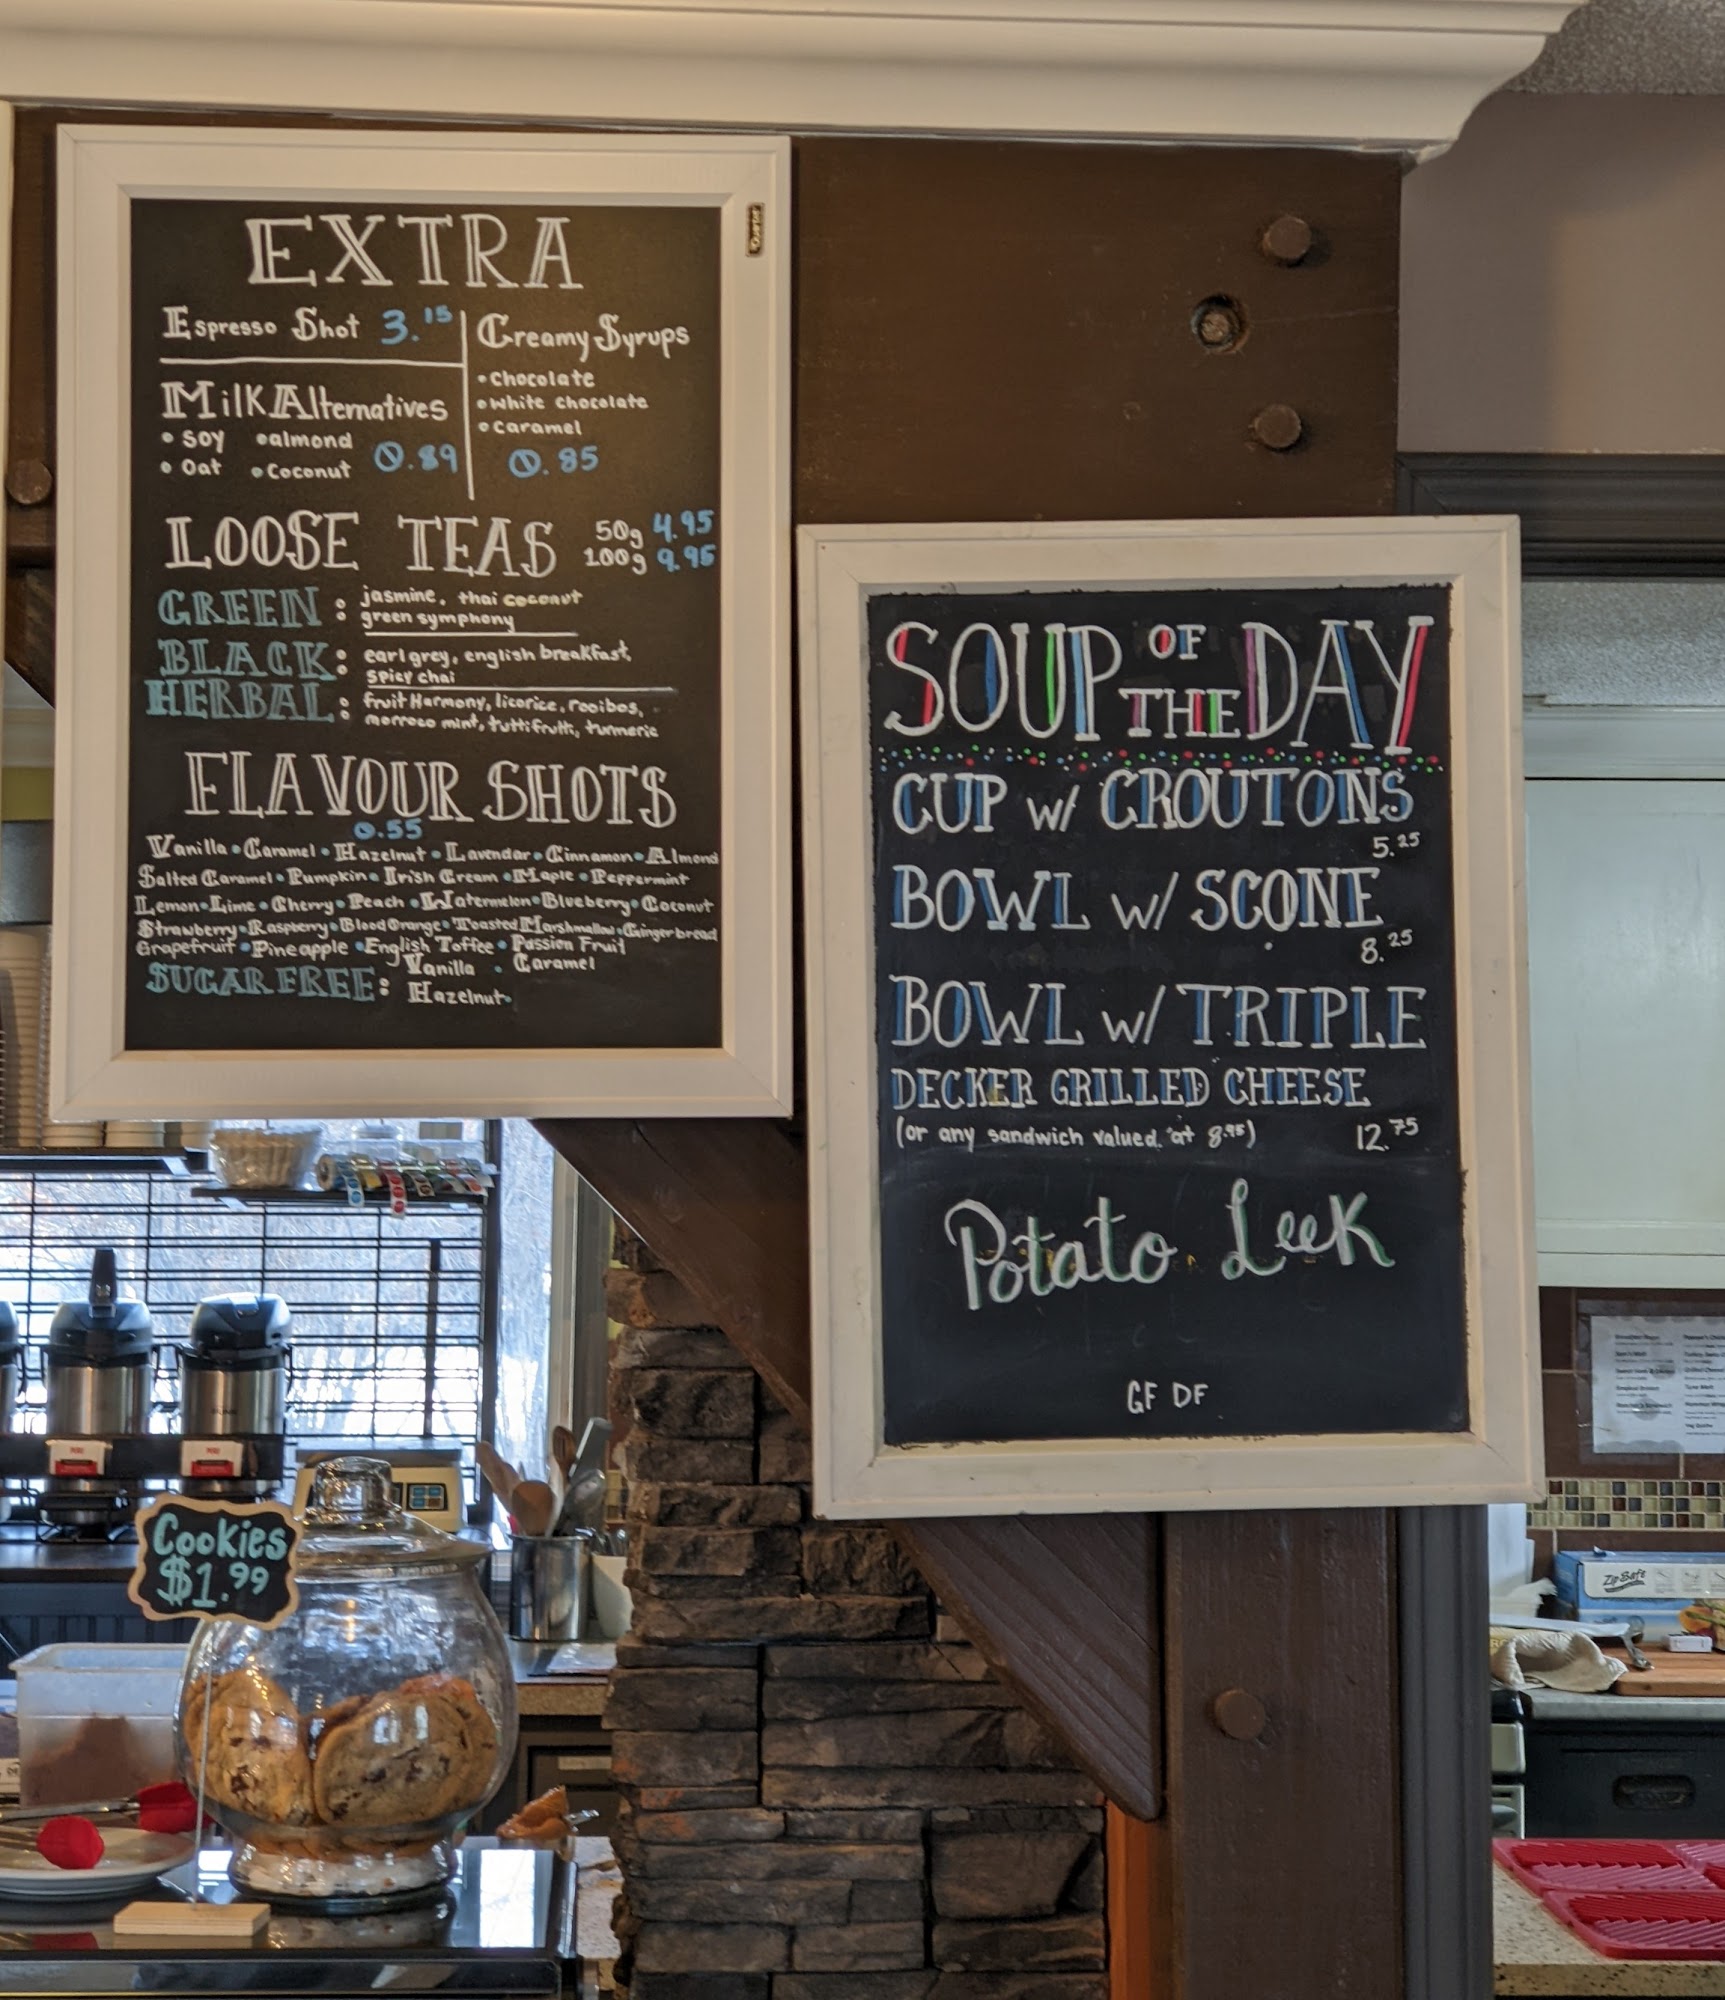 EXTRA
Espresso Shot 3.15
Milk Alternatives
• Soy • almond
• Oat • Coconut 0.89
Creamy Syrups
• Chocolate
• White Chocolate
• Caramel
0.85
LOOSE TEAS 50g 4.95
100g 9.95
GREEN: jasmine, thai coconut
green symphony
BLACK: earl grey, english breakfast,
spicy chai
HERBAL: fruit Harmony, licorice, rooibos,
morroco mint, tutti frutti, turmeric
FLAVOUR SHOTS
0.55
Vanilla • Caramel • Hazelnut • Lavendar • Cinnamon • Almond
Salted Caramel • Pumpkin • Irish Cream • Maple • Peppermint
Lemon • Lime • Cherry • Peach • Watermelon • Blueberry • Coconut
Strawberry • Raspberry • Blood Orange • Toasted Marshmallow • Gingerbread
Grapefruit • Pineapple • English Toffee • Passion Fruit
SUGAR FREE: Vanilla • Caramel
Hazelnut •
SOUP OF THE DAY
CUP w/ CROUTONS
5.25
BOWL w/ SCONE
8.25
BOWL w/ TRIPLE
DECKER GRILLED CHEESE
(or any sandwich valued at 8.95) 12.75
Potato Leek
GF DF
Cookies
$1.99
Zip Safe